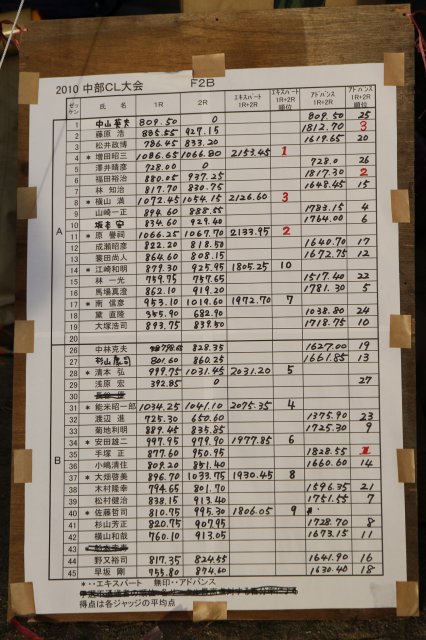 2010 中部CL大会 F2B
ゼッケン 氏名 1R 2R エキスパート 1R+2R エキスパート 1R+2R 順位 アドバンス 1R+2R アドバンス 1R+2R 順位
A
1 中山 英夫 809.50 0 809.50 25
2 藤原 浩 885.55 927.15 1812.70 3
3 松井政博 786.45 833.20 1619.65 20
4 * 増田昭三 1086.65 1066.80 2153.45 1
5 澤井晴彦 728.00 0 728.0 26
6 福田裕治 880.05 937.25 1817.30 2
7 林 知治 817.70 830.75 1648.45 15
8 * 横山 満 1072.45 1054.15 2126.60 3
9 山崎一正 894.60 888.55 1783.15 4
10 834.60 929.40 1764.00 6
11 * 原 誉祠 1066.25 1067.70 2133.95 2
12 成瀬昭彦 822.20 818.50 1640.70 17
13 蓑田尚人 864.60 808.15 1672.75 12
14 * 江崎和明 879.30 925.95 1805.25 10
15 林 一光 759.75 757.65 1517.40 22
16 馬場真澄 862.10 919.20 1781.30 5
17 * 南 信彦 953.10 1019.60 1972.70 7
18 黛 直隆 355.90 682.90 1038.80 24
19 大塚浩司 893.75 839.50 1718.75 10
20
B
26 中林克夫 798.65 828.35 1627.00 19
27 杉山 801.60 860.25 1661.85 13
28 * 清本 弘 999.75 1031.45 2031.20 5
29 浅原 宏 392.85 0 27
30
31 * 能米昭一郎 1034.25 1041.10 2075.35 4
32 渡辺 進 725.30 650.60 1375.90 23
33 菊地利明 889.45 835.85 1725.30 9
34 * 安田雄二 997.95 979.90 1977.85 6
35 手塚 正 877.60 950.95 1828.55 1
36 小嶋清住 809.20 851.40 1660.60 14
37 * 大畑啓美 896.70 1033.75 1930.45 8
38 木村隆幸 794.65 801.70 1596.35 21
39 松村健治 838.15 913.40 1751.55 7
40 * 佐藤哲司 810.75 995.30 1806.05 9
41 杉山芳正 820.75 907.95 1728.70 8
42 横山和哉 760.10 913.05 1673.15 11
43
44 野又裕司 817.35 824.55 1641.90 16
45 早坂 剛 755.80 874.60 1630.40 18
*・・エキスパート 無印・・アドバンス
得点は各ジャッジの平均点